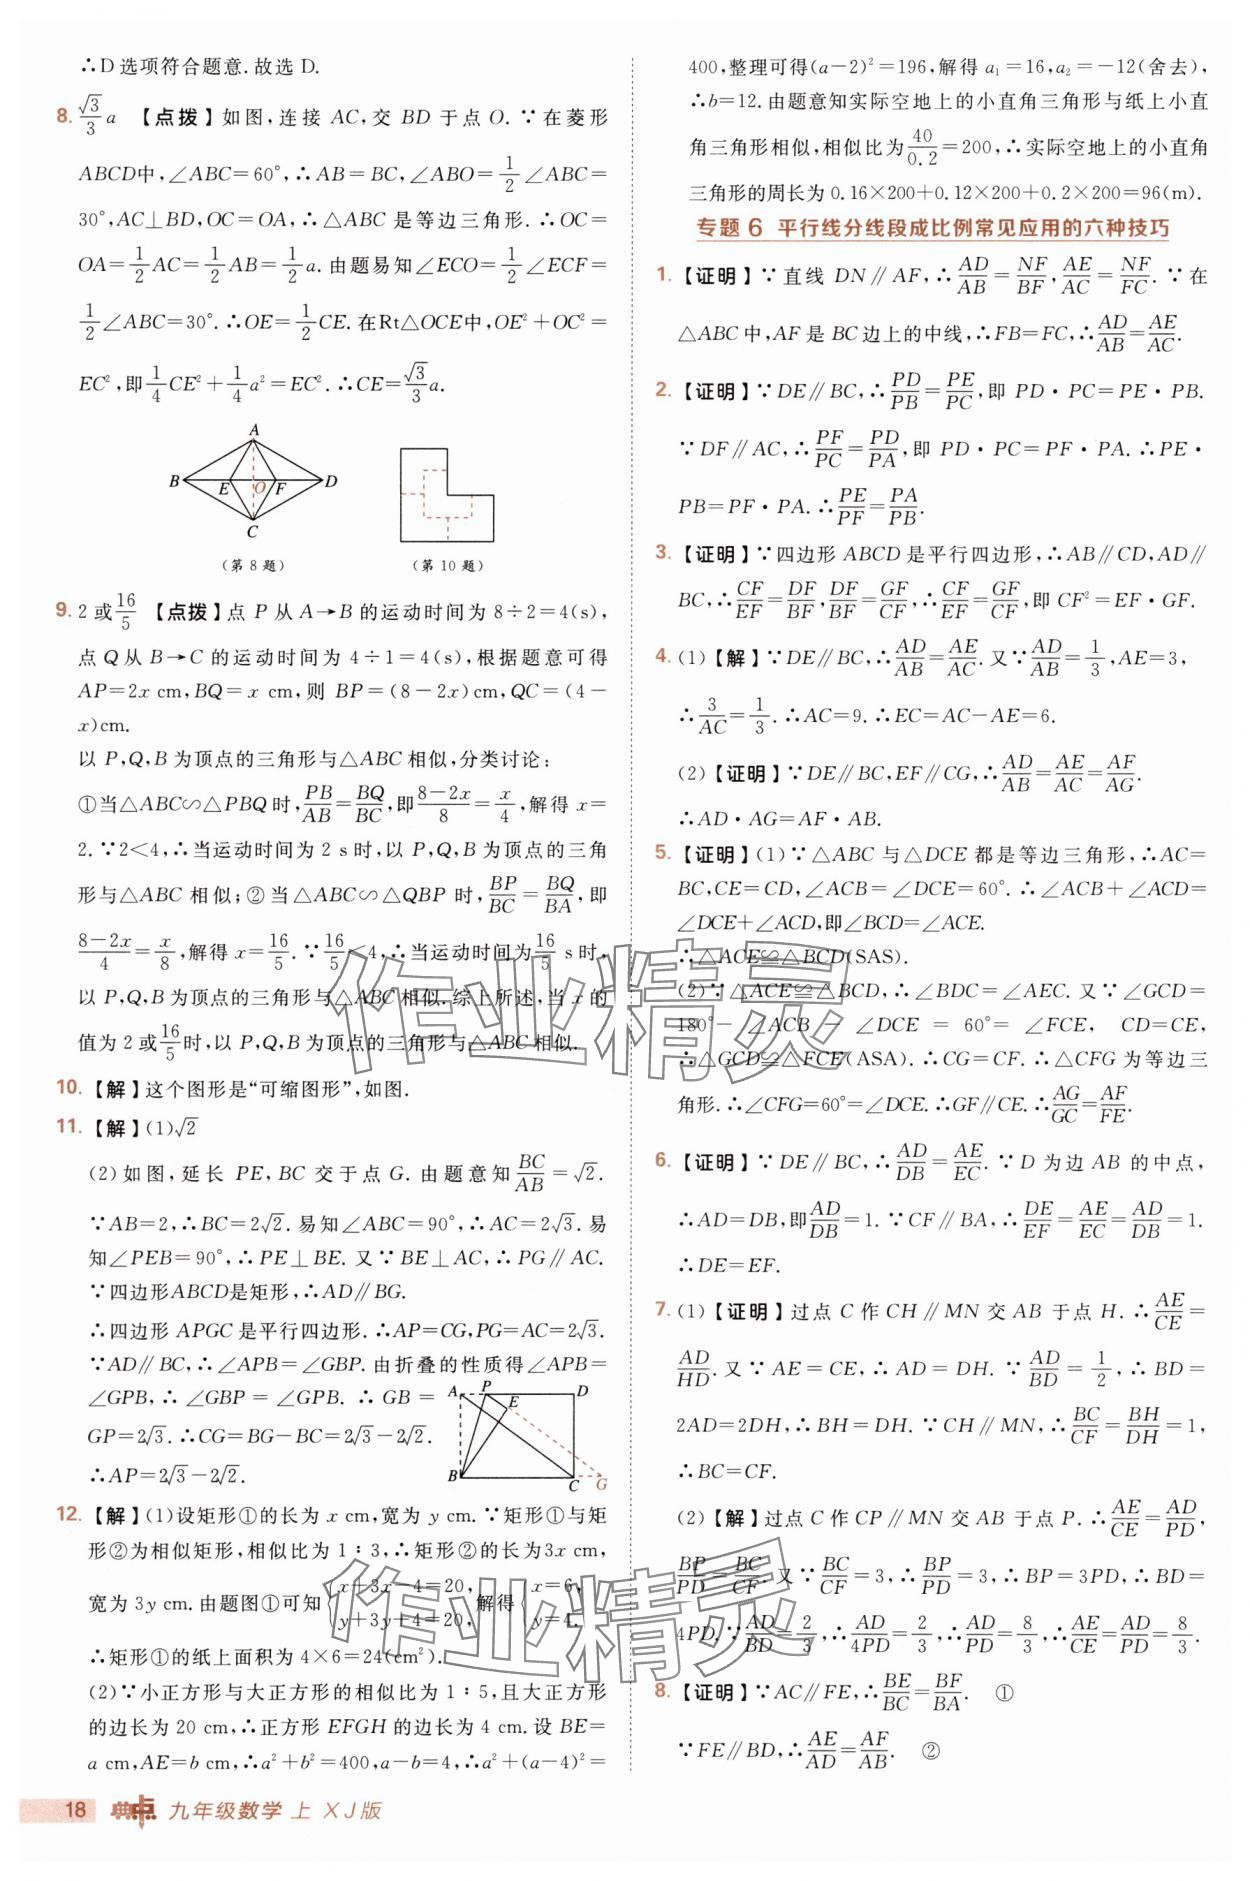 ∴D选项符合题意.故选 D.
8. √3/3 a 【点拨】如图,连接 AC,交 BD 于点 O. ∵在菱形
ABCD中,∠ABC=60°,∴AB=BC,∠ABO=1/2∠ABC=
30°,AC⊥BD,OC=OA,∴△ABC 是等边三角形.∴OC=
OA=1/2AC=1/2AB=1/2a.由题易知∠ECO=1/2∠ECF=
1/2∠ABC=30°.∴OE=1/2CE.在Rt△OCE中,OE²+OC²=
EC²,即1/4CE²+1/4a²=EC².∴CE=√3/3a.
A
B E O F D
C
(第8题)
(第10题)
9. 2或16/5 【点拨】点 P 从 A→B 的运动时间为 8÷2=4(s),
点 Q 从 B→C 的运动时间为 4÷1=4(s),根据题意可得
AP=2x cm,BQ=x cm,则 BP=(8-2x)cm,QC=(4-
x)cm.
以 P,Q,B 为顶点的三角形与△ABC 相似,分类讨论:
①当△ABC∽△PBQ时,PB/AB=BQ/BC,即(8-2x)/8=x/4,解得 x=
2.∵2<4,∴当运动时间为 2 s时,以 P,Q,B 为顶点的三角
形与△ABC 相似;②当△ABC∽△QBP 时,BP/BC=BQ/BA,即
(8-2x)/4=x/8,解得x=16/5.∵16/5<4,∴当运动时间为16/5 s时,
以 P,Q,B 为顶点的三角形与△ABC相似.综上所述,当 x的
值为 2 或16/5时,以P,Q,B为顶点的三角形与△ABC相似.
10. 【解】这个图形是“可缩图形”,如图.
11. 【解】(1)√2
(2)如图,延长 PE,BC 交于点 G. 由题意知BC/AB=√2.
∵AB=2,∴BC=2√2.易知∠ABC=90°,∴AC=2√3.易
知∠PEB=90°,∴PE⊥BE. 又∵BE⊥AC,∴PG∥AC.
∵四边形ABCD是矩形,∴AD∥BG.
∴四边形 APGC 是平行四边形.∴AP=CG,PG=AC=2√3.
∵AD∥BC,∴∠APB=∠GBP.由折叠的性质得∠APB=
∠GPB,∴∠GBP=∠GPB.∴GB=
GP=2√3.∴CG=BG-BC=2√3-2√2.
∴AP=2√3-2√2.
A P D
E
B C G
12. 【解】(1)设矩形①的长为 x cm,宽为 y cm.∵矩形①与矩
形②为相似矩形,相似比为 1∶3,∴矩形②的长为3x cm,
宽为 3y cm.由题图①可知{x+3x-4=20, y+3y+4=20,解得{x=6, y=4.
∴矩形①的纸上面积为 4×6=24(cm²).
(2)∵小正方形与大正方形的相似比为 1∶5,且大正方形
的边长为 20 cm,∴正方形 EFGH 的边长为 4 cm.设 BE=
a cm,AE=b cm,∴a²+b²=400,a-b=4,∴a²+(a-4)²=
400,整理可得(a-2)²=196,解得 a₁=16,a₂=-12(舍去),
∴b=12.由题意知实际空地上的小直角三角形与纸上小直
角三角形相似,相似比为40/0.2=200,∴实际空地上的小直角
三角形的周长为 0.16×200+0.12×200+0.2×200=96(m).
专题 6 平行线分线段成比例常见应用的六种技巧
1. 【证明】∵直线 DN∥AF,∴AD/AB=NF/BF,AE/AC=NF/FC.∵在
△ABC中,AF 是 BC边上的中线,∴FB=FC,∴AD/AB=AE/AC.
2. 【证明】∵DE∥BC,∴PD/PB=PE/PC,即 PD·PC=PE·PB.
∵DF∥AC,∴PF/PC=PD/PA,即 PD·PC=PF·PA.∴PE·
PB=PF·PA.∴PE/PF=PA/PB.
3. 【证明】∵四边形 ABCD 是平行四边形,∴AB∥CD,AD∥
BC,∴CF/EF=DF/BF,DF/BF=GF/CF,∴CF/EF=GF/CF,即 CF²=EF·GF.
4. (1)【解】∵DE∥BC,∴AD/AB=AE/AC.又∵AD/AB=1/3,AE=3,
∴3/AC=1/3.∴AC=9.∴EC=AC-AE=6.
(2)【证明】∵DE∥BC,EF∥CG,∴AD/AB=AE/AC=AF/AG.
∴AD·AG=AF·AB.
5. 【证明】(1)∵△ABC 与△DCE 都是等边三角形,∴AC=
BC,CE=CD,∠ACB=∠DCE=60°.∴∠ACB+∠ACD=
∠DCE+∠ACD,即∠BCD=∠ACE.
∴△ACE≌△BCD(SAS).
(2)∵△ACE≌△BCD,∴∠BDC=∠AEC. 又∵∠GCD=
180°-∠ACB-∠DCE=60°=∠FCE, CD=CE,
∴△GCD≌△FCE(ASA).∴CG=CF.∴△CFG 为等边三
角形.∴∠CFG=60°=∠DCE.∴GF∥CE.∴AG/GC=AF/FE.
6. 【证明】∵DE∥BC,∴AD/DB=AE/EC.∵D 为边 AB 的中点,
∴AD=DB,即AD/DB=1.∵CF∥BA,∴DE/EF=AE/EC=AD/DB=1.
∴DE=EF.
7. (1)【证明】过点 C 作 CH∥MN 交 AB 于点 H.∴AE/CE=
AD/HD.又∵AE=CE,∴AD=DH.∵AD/BD=1/2,∴BD=
2AD=2DH,∴BH=DH.∵CH∥MN,∴BC/CF=BH/DH=1,
∴BC=CF.
(2)【解】过点C作CP∥MN 交 AB 于点 P.∴AE/CE=AD/PD,
BP/PD=BC/CF.又∵BC/CF=3,∴BP/PD=3,∴BP=3PD,∴BD=
4PD.∵AD/BD=2/3,∴AD/4PD=2/3,∴AD/PD=8/3,∴AE/CE=AD/PD=8/3.
8. 【证明】∵AC∥FE,∴BE/BC=BF/BA. ①
∵FE∥BD,∴AE/AD=AF/AB. ②
18 典中点 九年级数学 上 XJ版
作业精灵
作业精灵